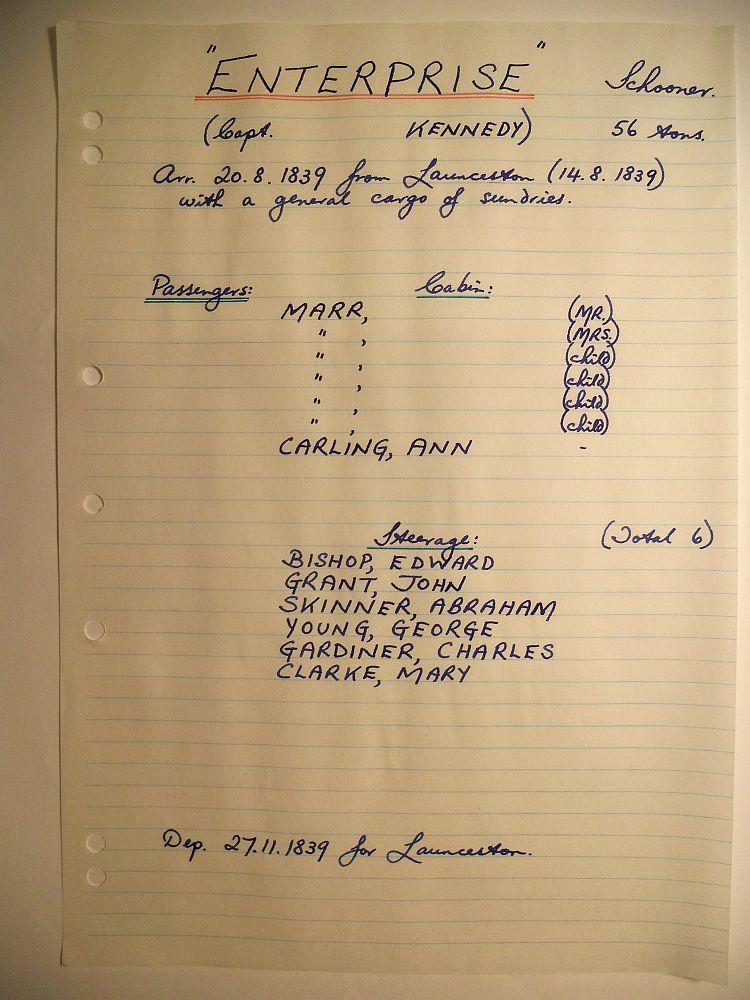 "ENTERPRISE" Schooner.
(Capt. KENNEDY) 56 tons.
Arr. 20.8.1839 from Launceston (14.8.1839)
with a general cargo of sundries.
Passengers: Cabin:
MARR, (MR.)
" , (MRS.)
" , (child)
" , (child)
" , (child)
" , (child)
CARLING, ANN -
Steerage: (Total 6)
BISHOP, EDWARD
GRANT, JOHN
SKINNER, ABRAHAM
YOUNG, GEORGE
GARDINER, CHARLES
CLARKE, MARY
Dep. 27.11.1839 for Launceston.